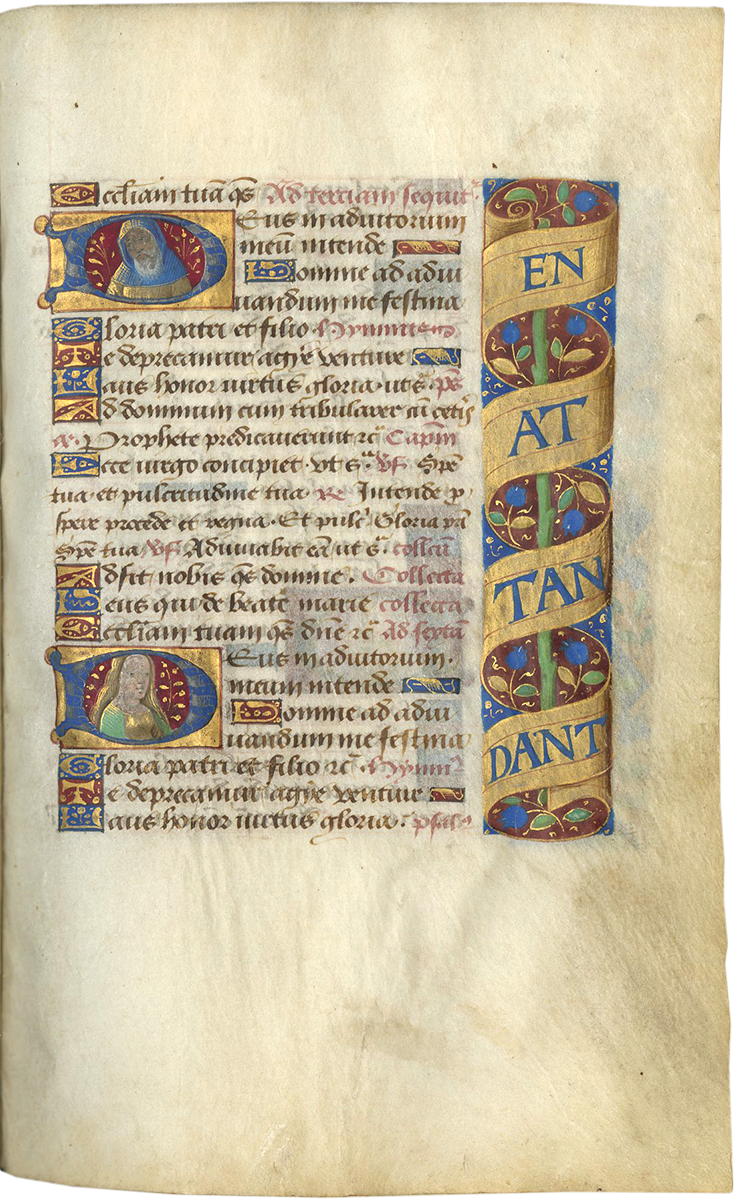 Eccliam tuā q̄s Ad terciam sequit̄
Deus in adiutorium
meū intende
Domine ad adiu
uandum me festina
Gloria patri et filio Hymnus
Te deprecamur
Laus honor uirtus gloria ut s̄ ps̄
Ad dominum cum tribularer cū cet̄is
Prophete predicauerunt rc̄ Capi
Ecce uirgo concipiet ut s̄ Vs̄ Spē
tua et pulcritudine tua Re Intende p
spere procede et regna Et pulc̄ Gloria
Spē tua Vs̄ Adiuuabit eā ut s̄ collcā
Adsit nobis q̄s domine Collecta
Deus qui de beate marie collecta
Eccliam tuam q̄s dn̄e rc̄ Ad sextā
Deus in adiutorium
meum intende
Domine ad adiu
uandum me festina
Gloria patri et filio rc̄ Hymn̄
Te deprecamur
Laus honor uirtus gloria psal
EN
AT
TAN
DANT